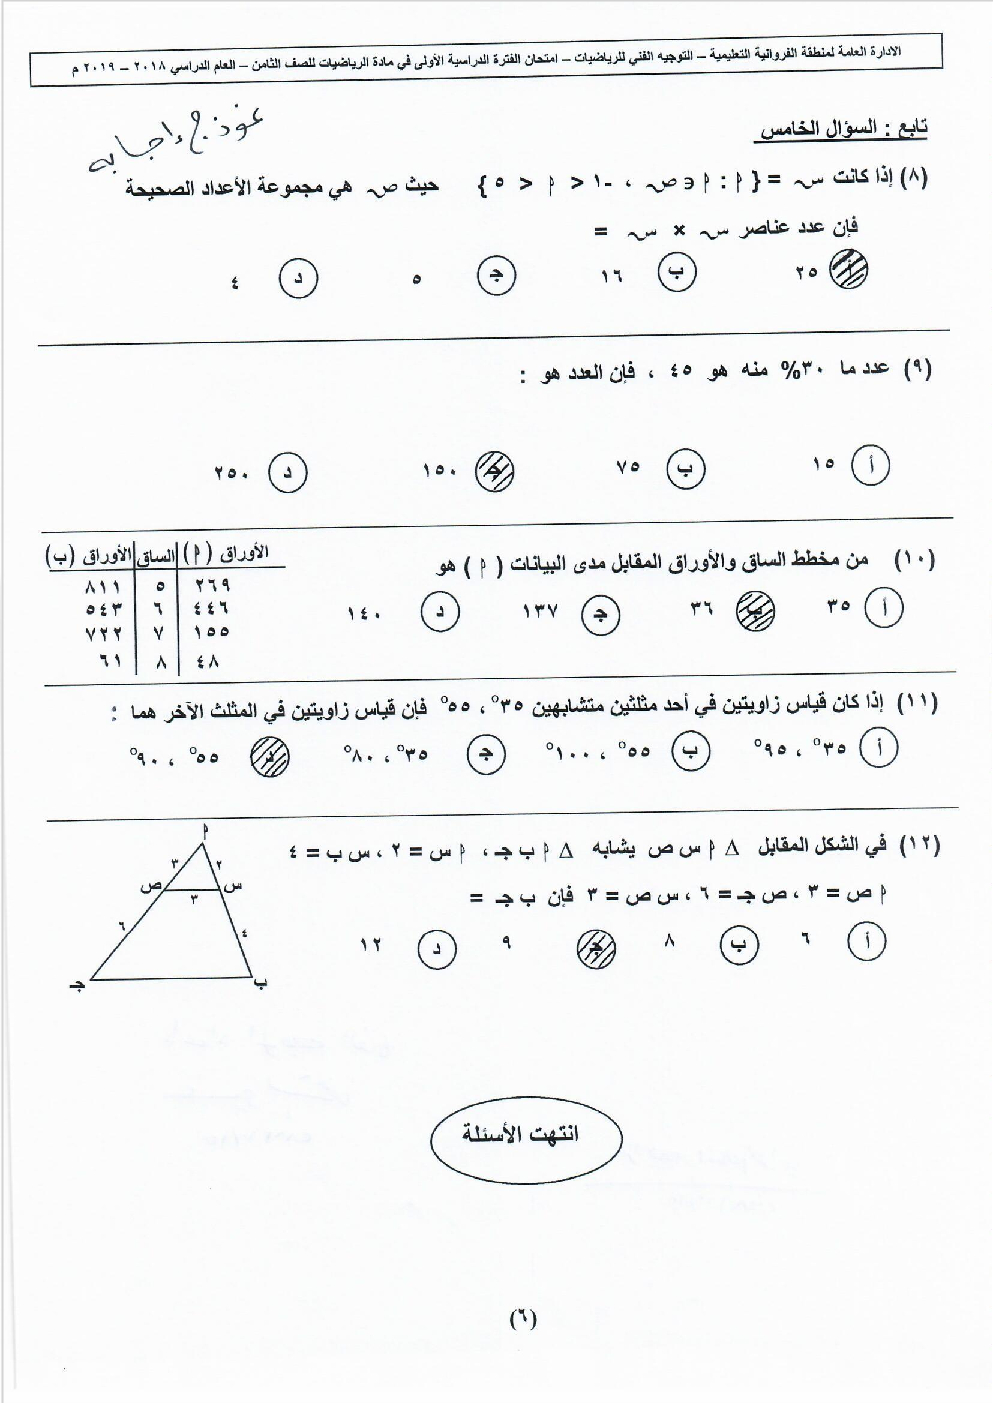 الادارة العامة لمنطقة الفروانية التعليمية – التوجيه الفني للرياضيات – امتحان الفترة الدراسية الأولى في مادة الرياضيات للصف الثامن – العام الدراسي ٢٠١٨ – ٢٠١٩ م
نموذج إجابه
تابع : السؤال الخامس
(٨) إذا كانت س = { م : م ∈ ص ، -١ < م < ٥ } حيث ص هي مجموعة الأعداد الصحيحة
فإن عدد عناصر س × س =
أ ٢٥ ب ١٦ ج ٥ د ٤
(٩) عدد ما ٣٠% منه هو ٤٥ ، فإن العدد هو :
أ ١٥ ب ٧٥ ج ١٥٠ د ٢٥٠
(١٠) من مخطط الساق والأوراق المقابل مدى البيانات ( م ) هو
أ ٣٥ ب ٣٦ ج ١٣٧ د ١٤٠
الأوراق ( م ) الساق الأوراق (ب)
٢٦٩ ٥ ٨١١
٤٤٦ ٦ ٥٤٣
١٥٥ ٧ ٧٢٢
٤٨ ٨ ٦١
(١١) إذا كان قياس زاويتين في أحد مثلثين متشابهين ٣٥° ، ٥٥° فإن قياس زاويتين في المثلث الآخر هما :
أ ٣٥° ، ٩٥° ب ٥٥° ، ١٠٠° ج ٣٥° ، ٨٠° د ٥٥° ، ٩٠°
(١٢) في الشكل المقابل Δ م س ص يشابه Δ م ب جـ ، م س = ٢ ، س ب = ٤
م ص = ٣ ، ص جـ = ٦ ، س ص = ٣ فإن ب جـ =
أ ٦ ب ٨ ج ٩ د ١٢
م
٣ ٢
ص س
٣
٦ ٤
جـ ب
انتهت الأسئلة
(٦)